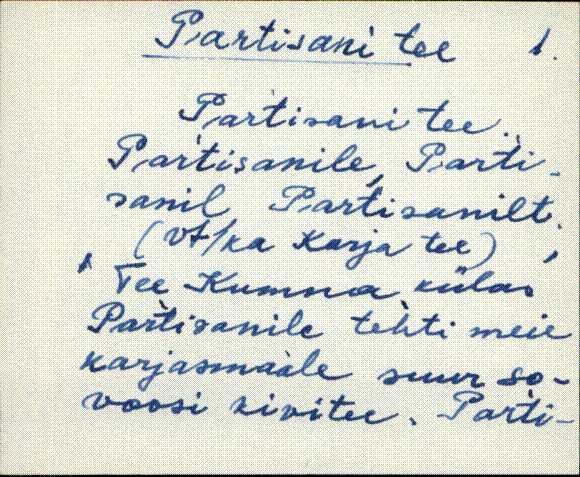 Partisani tee 1.
Partisani tee.
Partisanile, Parti-
sanil Partisanilt.
(vt/ka Karja tee)
' Tee Kumna külas '
Partisanile tehti meie
karjasmaale suur so-
voosi kivitee. Parti-